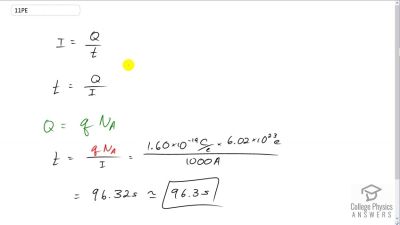 11PE
I = Q/t
t = Q/I
Q = q N_A
t = q N_A / I = 1.60×10⁻¹⁹ C/e × 6.02×10²³ e / 1000 A
= 96.32 s ≃ 96.3 s
College Physics
ANSWERS